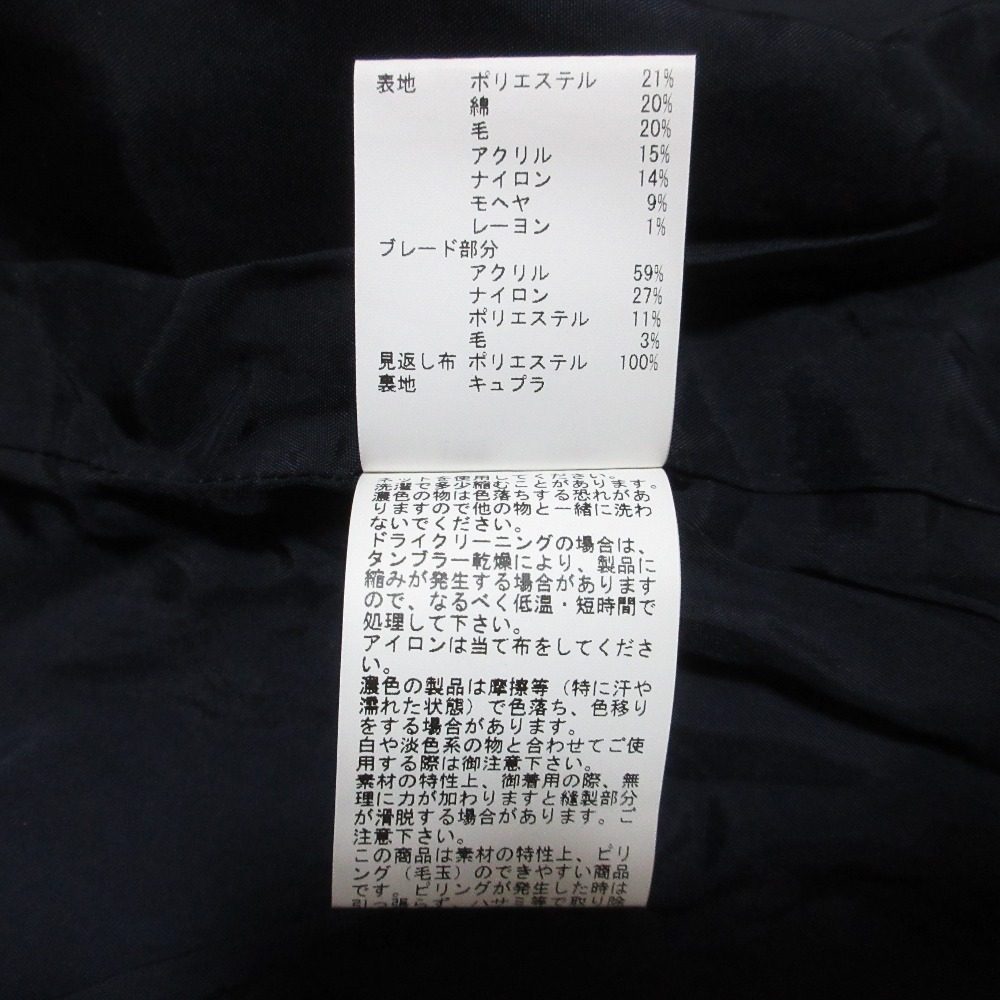 表地 ポリエステル 21%
綿 20%
毛 20%
アクリル 15%
ナイロン 14%
モヘヤ 9%
レーヨン 1%
ブレード部分
アクリル 59%
ナイロン 27%
ポリエステル 11%
毛 3%
見返し布 ポリエステル 100%
裏地 キュプラ
ください。
洗濯で多少縮むことがあります。
濃色の物は色落ちする恐れがあ
りますので他の物と一緒に洗わ
ないでください。
ドライクリーニングの場合は、
タンブラー乾燥により、製品に
縮みが発生する場合があります
ので、なるべく低温・短時間で
処理して下さい。
アイロンは当て布をしてくださ
い。
濃色の製品は摩擦等（特に汗や
濡れた状態）で色落ち、色移り
をする場合があります。
白や淡色系の物と合わせてご使
用する際は御注意下さい。
素材の特性上、御着用の際、無
理に力が加わりますと縫製部分
が滑脱する場合があります。ご
注意下さい。
この商品は素材の特性上、ピリ
ング（毛玉）のできやすい商品
です。ピリングが発生した時は
引っ張らず、ハサミ等で取り除